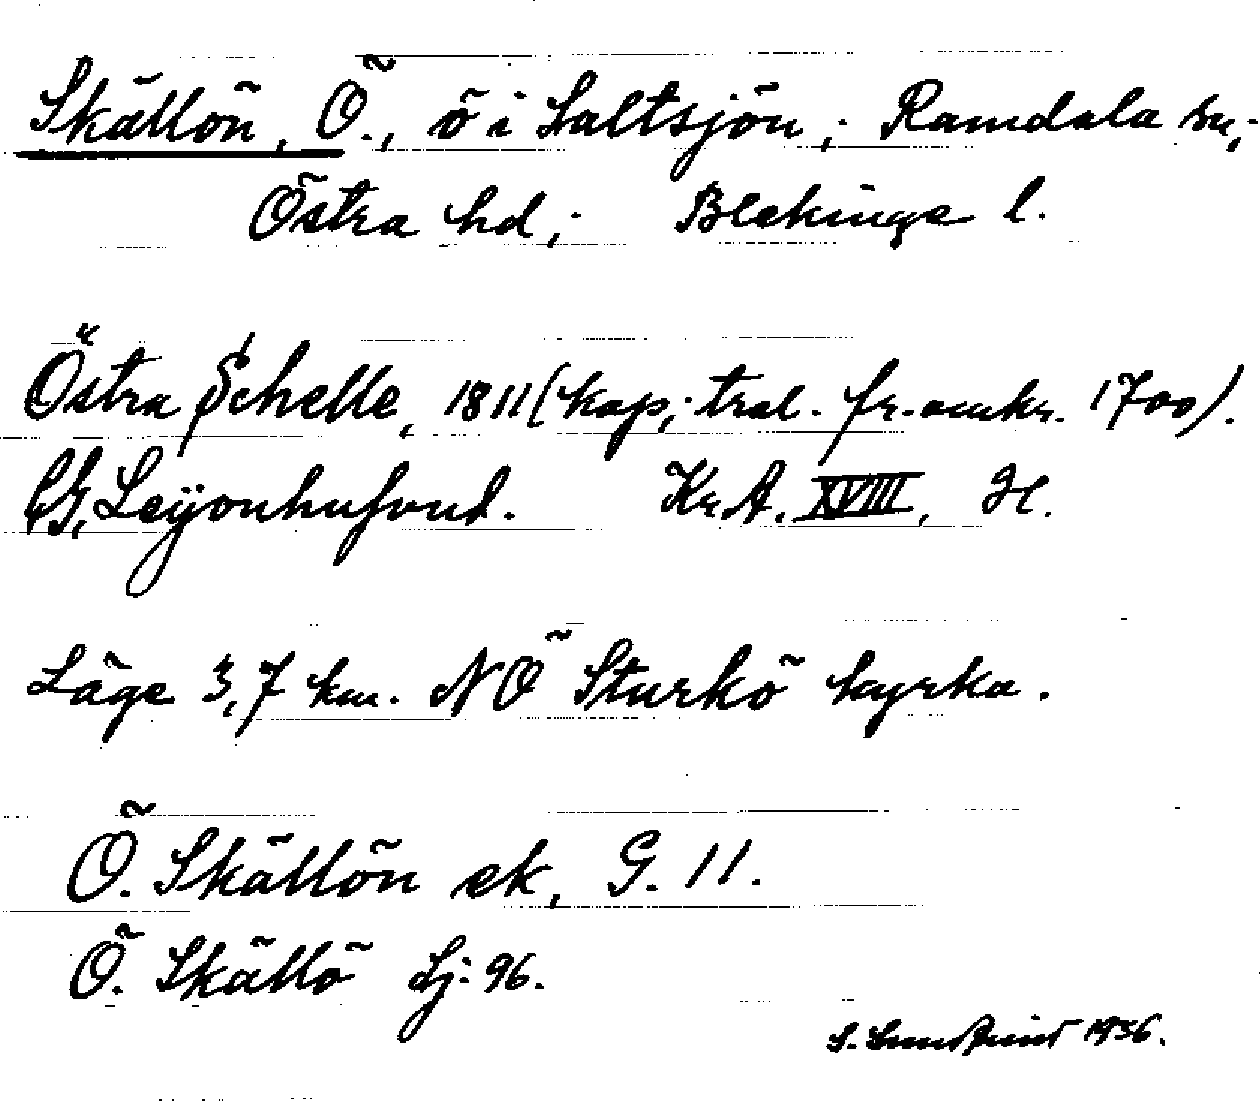 Skällön, Ö., ö i Saltsjön; Ramdala sn;
Östra hd; Blekinge l.
Östra Schelle, 1811 (kop; tral. fr. omkr. 1700).
CG. Leÿonhufvud. Kr.A. XVIII, H.
Läge 3,7 km. NÖ Sturkö kyrka.
Ö. Skällön ek, G. 11.
Ö. Skällö Sj: 96.
S. 1936.